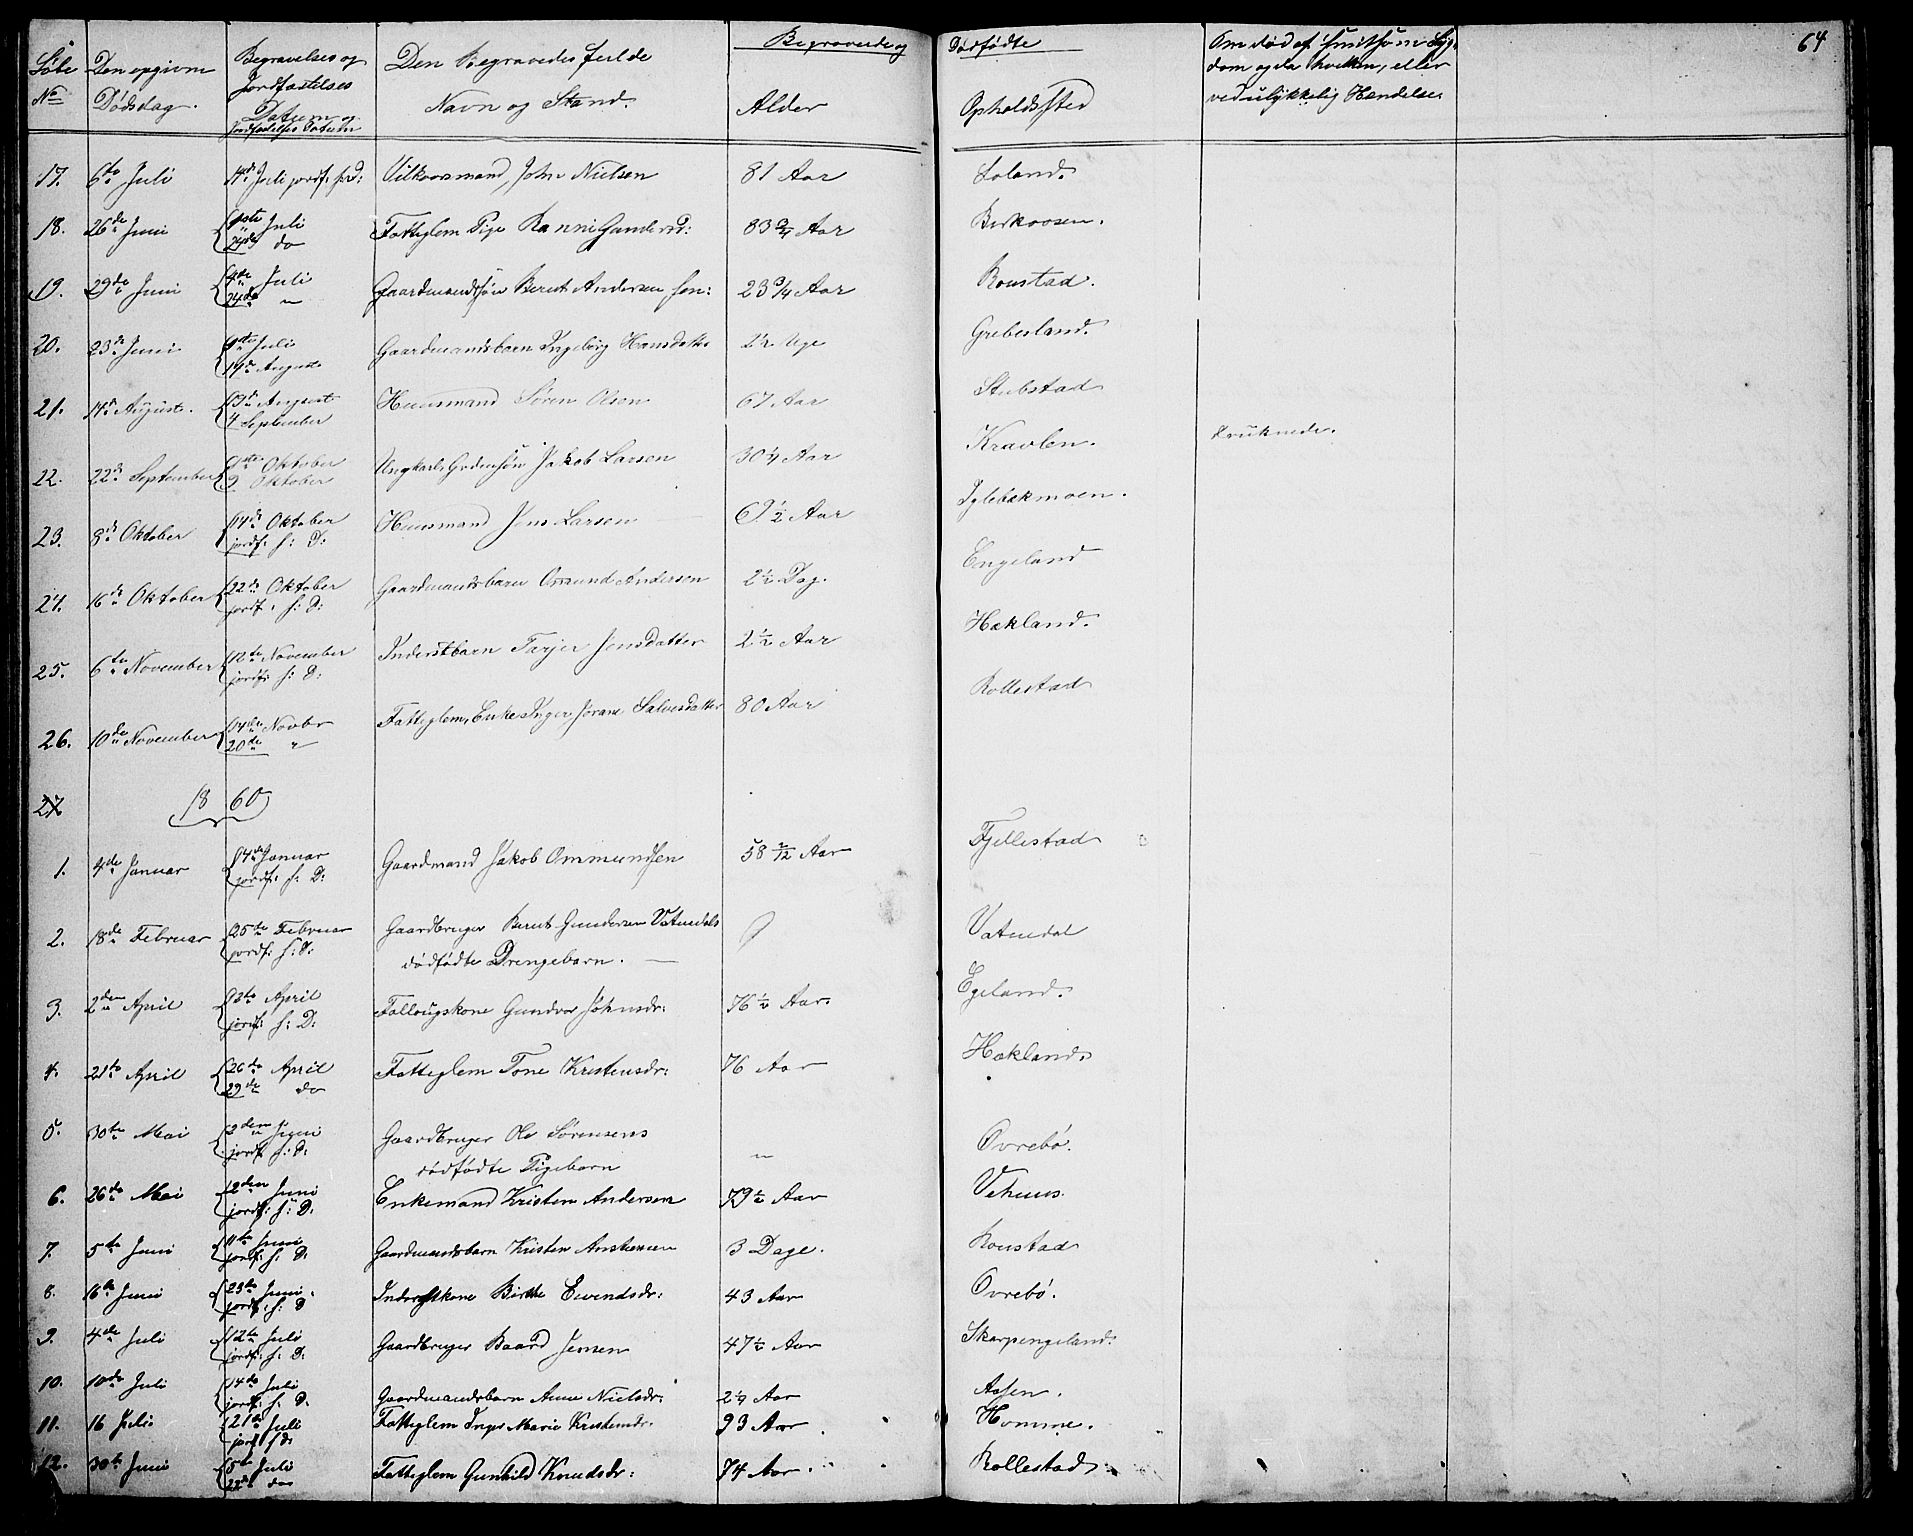 Begravede og Dødfødte
64
Løbe No Den opgivne Dødsdag. Begravelses og Jordfæstelses Datum og Jordfæstelses Datum Den Begravedes fulde Navn og Stand. Alder Opholdssted Om død af smitsom Syg dom og da hvilken, eller ved ulykkelig Hændelse.
17. 6te Juli 14de Juli jordf: s: D: Vilkoorsmand, John Nielsen 81 Aar Loland.
18. 26de Juni 1ste Juli 24de do Fatteglem Pige Ranni Gundersd: 83 3/4 Aar Birkaasen.
19. 29de Juni 4de Juli 24de " Gaardmandssøn Berent Andersen sen: 23 3/4 Aar Roustad.
20. 23de Juni Juli 14de August Gaardmandsbarn Ingeborg Hansdatter 2 1/2 Uge Grebesland.
21. 14de August. 19de August 4 September Huusmand Søren Olsen 67 Aar Stubstad
22. 22de September 1ste Oktober 9 Oktober Ungkarl Jakob Larsen 30 1/4 Aar Kravlen. druknede.
23. 8de Oktober 14de Oktober jordf: s: D: Huusmand Jens Larsen 6 1/2 Aar Iglebækmoen.
24. 16de Oktober 22de Oktober jordf: s: D: Gaardmandsbarn Omund Andersen 2 1/2 Dag. Engeland
25. 6te November 12te November jordf: s: D: Inderstbarn Tarjer Jensdatter 2 1/2 Aar Hækland.
26. 10de November 14de Novbr 20de " Fatteglem, Enke Inger Jorane Salvesdatter 80 Aar Rollestad
27
1860
1. 4de Januar 14de Januar jordf: s: D: Gaardmand Jakob Ommundsen 58 2/12 Aar Fjellestad
2. 18de Februar 25de Februar jordf: s: D: Gaardbruger Berent Gundersen Vatnedals Vatnedal
dødfødte Drengebarn.
3. 2den April April jordf: s: D: Follougskone Gundvor Johnsdr: 76 1/2 Aar. Egeland.
4. 21de April 26de April 29de do Fatteglem Tone Kristensdr: 76 Aar Hækland.
5. 30te Mai 2den Juni jordf: s: D: Gaardbruger Ole Sørensens " Øvrebø.
dødfødte Pigebarn
6. 26de Mai 2den Juni jordf: s: D: Enkemand Kristen Andersen 79 1/2 Aar Vehuus.
7. 5te Juni 11te Juni jordf: s: D: Gaardmandsbarn Kristen Anstensen 3 Dage. Roustad
8. 16de Juni 23de Juni. jordf: s: D Inderstkone Birthe Eivendsdr: 43 Aar Øvrebø.
9. 4de Juli 12te Juli jordf: s: D: Gaardbruger Baard Jensen 47 1/2 Aar Skarpengeland.
10. 10de Juli 14de Juli jordf: s: D: Gaardmandsbarn Anne Nielsdr: 2 1/4 Aar Aasen.
11. 16 Juli 21de Juli jord s d: Fatteglem Inger Marie Kristensdr: 93 Aar Homme.
12. 30te Juni 5te Juli 22de do Fatteglem Gunhild Knudsdr: 74 Aar. Rollestad